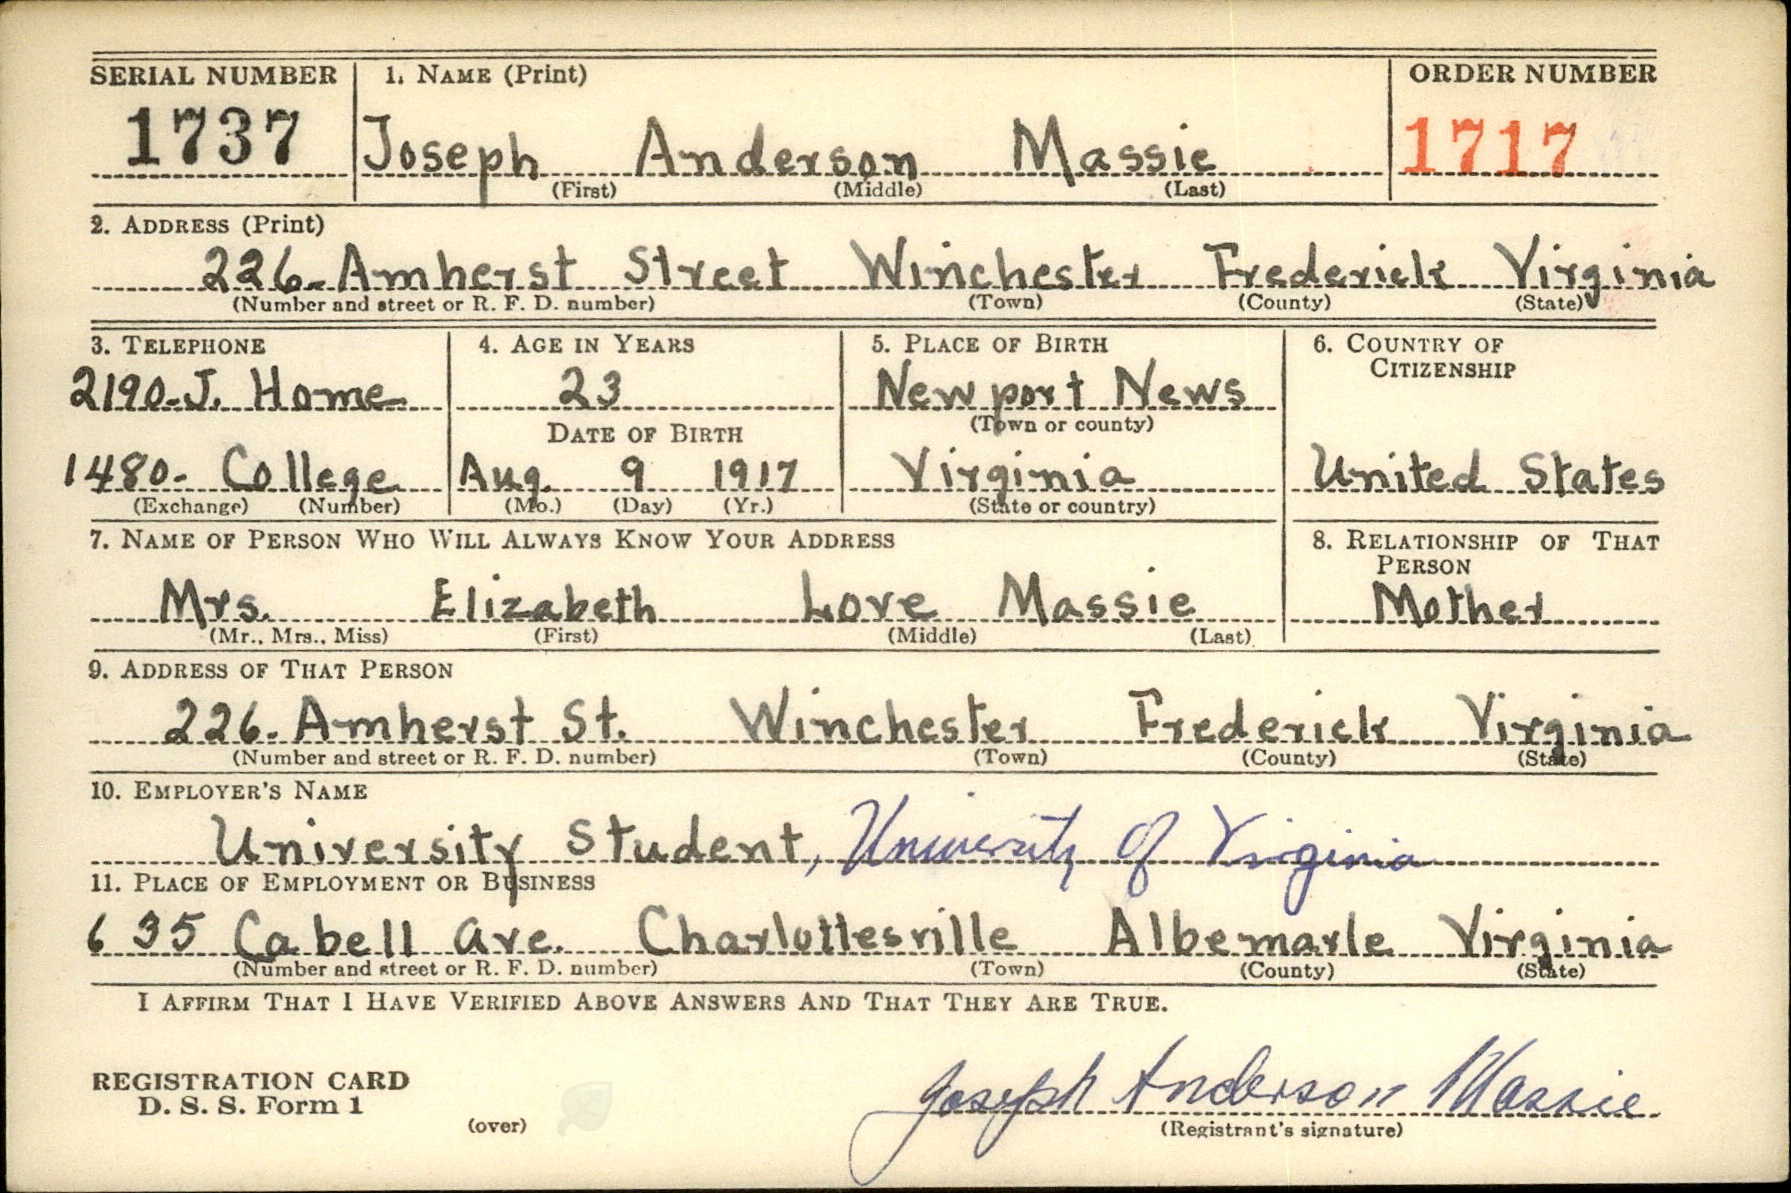 SERIAL NUMBER 1. NAME (Print) ORDER NUMBER
1737 Joseph Anderson Massie 1717
(First) (Middle) (Last)
2. ADDRESS (Print)
226. Amherst Street Winchester Frederick Virginia
(Number and street or R. F. D. number) (Town) (County) (State)
3. TELEPHONE 4. AGE IN YEARS 5. PLACE OF BIRTH 6. COUNTRY OF
CITIZENSHIP
2190-J. Home 23 Newport News
DATE OF BIRTH (Town or county)
1480- College Aug. 9 1917 Virginia United States
(Exchange) (Number) (Mo.) (Day) (Yr.) (State or country)
7. NAME OF PERSON WHO WILL ALWAYS KNOW YOUR ADDRESS 8. RELATIONSHIP OF THAT
PERSON
Mrs. Elizabeth Love Massie Mother
(Mr., Mrs., Miss) (First) (Middle) (Last)
9. ADDRESS OF THAT PERSON
226. Amherst St. Winchester Frederick Virginia
(Number and street or R. F. D. number) (Town) (County) (State)
10. EMPLOYER'S NAME
University Student, University of Virginia
11. PLACE OF EMPLOYMENT OR BUSINESS
635 Cabell Ave. Charlottesville Albemarle Virginia
(Number and street or R. F. D. number) (Town) (County) (State)
I AFFIRM THAT I HAVE VERIFIED ABOVE ANSWERS AND THAT THEY ARE TRUE.
REGISTRATION CARD
D. S. S. Form 1 Joseph Anderson Massie
(over) (Registrant's signature)